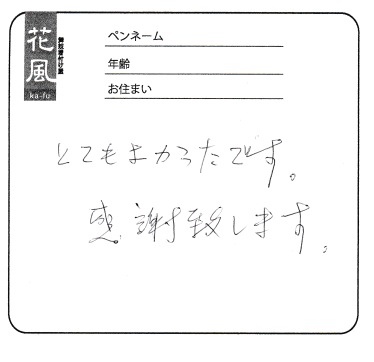 花風
ka-fu
ペンネーム
年齢
お住まい
とてもよかったです。
感謝致します。